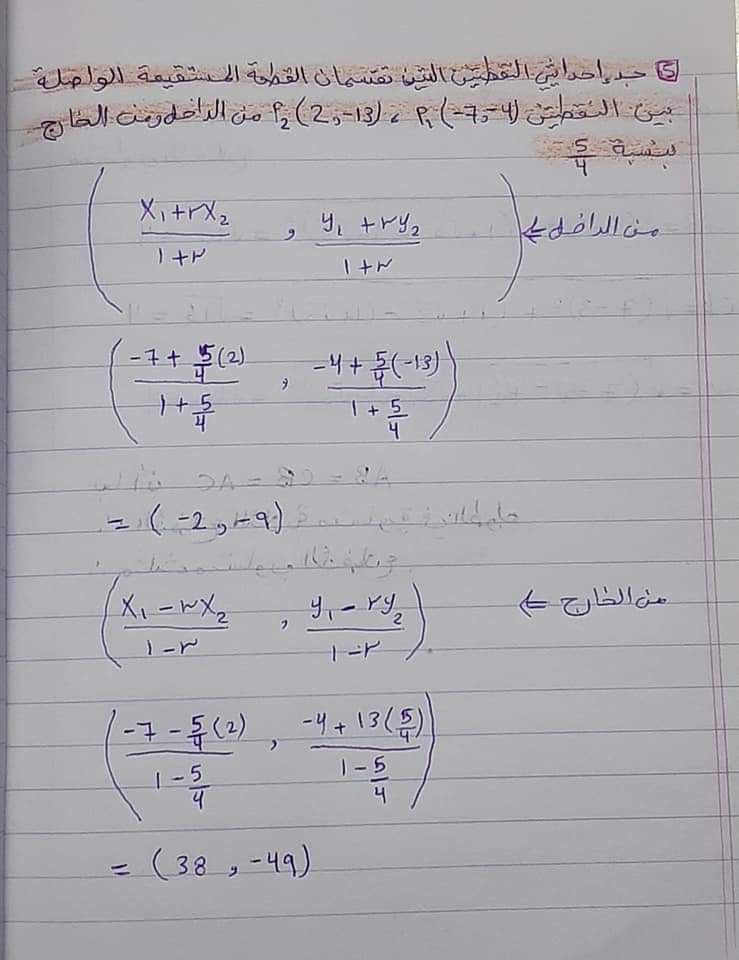 5 جد إحداثي النقطتين التين تقسمان القطعة المستقيمة الواصلة
بين النقطتين P₁(-7,-4) ، P₂(2,-13) من الداخل ومن الخارج
بنسبة 5/4
من الداخل ⇐ ( (x₁+rx₂)/(1+r) , (y₁+ry₂)/(1+r) )
( (-7+5/4(2))/(1+5/4) , (-4+5/4(-13))/(1+5/4) )
= (-2, -9)
من الخارج ⇐ ( (x₁-rx₂)/(1-r) , (y₁-ry₂)/(1-r) )
( (-7-5/4(2))/(1-5/4) , (-4+13(5/4))/(1-5/4) )
= (38, -49)